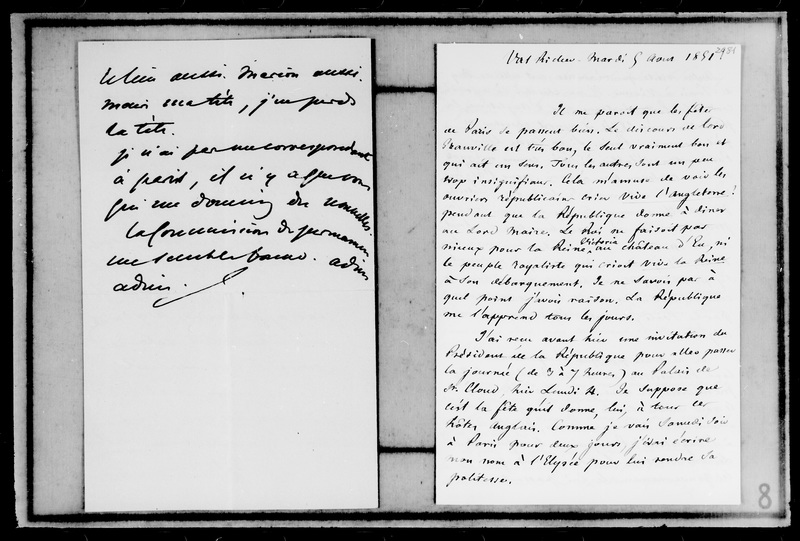 aussi. Marion aussi.
mais ma tête, j'en perds
la tête.
je n'ai pas un correspondant
à paris, il n'y a que vous
qui me donniez des nouvelles.
la Commission de permanence
me semble bonne. adieu
adieu.
Val Richer - Mardi 5 Août 1851
2981
Il me paroit que les fêtes
de Paris se passent bien. Le discours de lord
Granville est très bon, le seul vraiment bon et
qui ait un sens. Tous les autres sont un peu
trop insignifians. Cela m'amuse de voir les
ouvriers républicains crier Vive l'Angleterre!
pendant que la République donne à dîner
au Lord Maire. Le Roi ne faisoit pas
mieux pour la Reine Victoria au château d'Eu, ni
le peuple royaliste qui crioit Vive la Reine
à son débarquement. Je ne savois pas à
quel point j'avois raison. La République
me l'apprend tous les jours.
J'ai reçu avant hier une invitation du
Président de la République pour aller passer
la journée (de 3 à 7 heures) au Palais de
St. Cloud, hier Lundi 4. Je suppose que
c'est la fête qu'il donne, lui, à tous ces
hôtes anglais. Comme je vais Samedi soir
à Paris pour deux jours, j'irai écrire
mon nom à l'Elysée pour lui rendre sa
politesse.
8